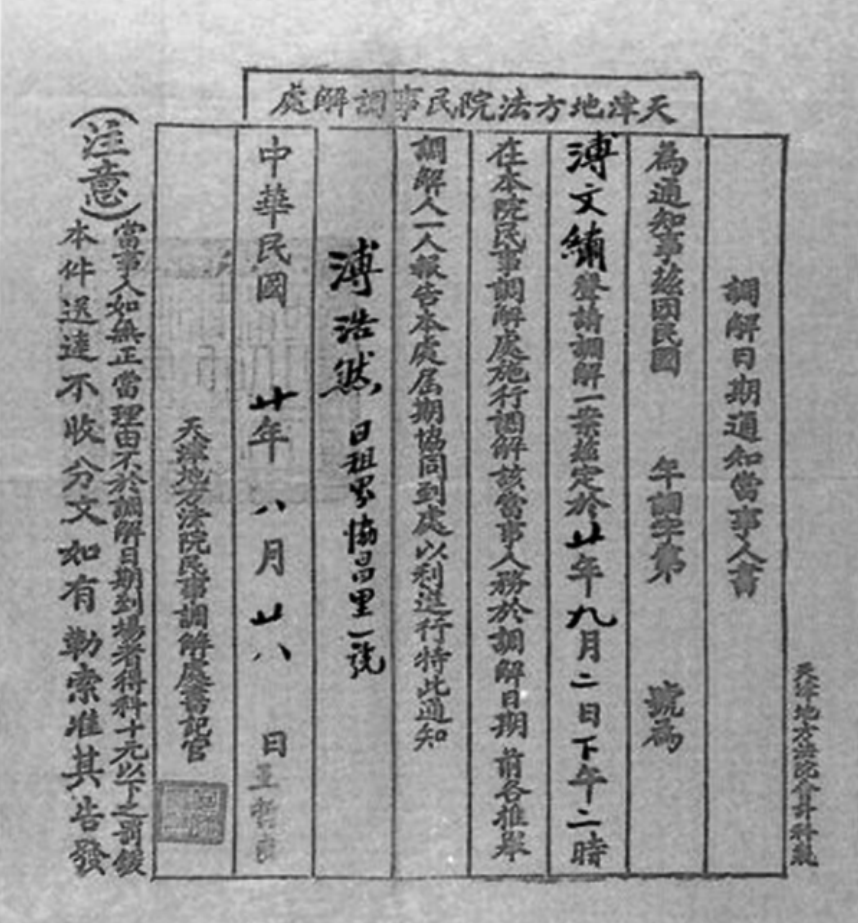 天津地方法院民事調解處
調解日期通知當事人書
為通知事茲因民國 年調字第 號為
溥文繡聲請調解一案茲定於廿年九月二日下午二時
在本院民事調解處施行調解該當事人務於調解日期前各推舉
調解人一人報告本處屆期協同到處以利進行特此通知
溥浩然 日租界協昌里一號
中華民國 廿年 八月 廿八 日
天津地方法院民事調解處書記官
(注意)
當事人如無正當理由不於調解日期到場者得科十元以下之罰鍰
本件送達不收分文如有勒索准其告發
天津地方法院會計科